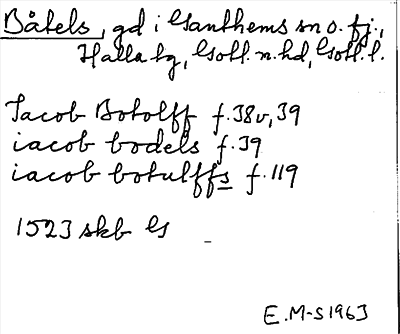 Båtels, gd i Ganthems sn o. fj.,
Halla tg, Gotl. n. hd, Gotl. l.
Jacob Botolff f. 38v, 39
iacob bodels f. 39
iacob botulffs f. 119
1523 skb G
E. M-S 1963